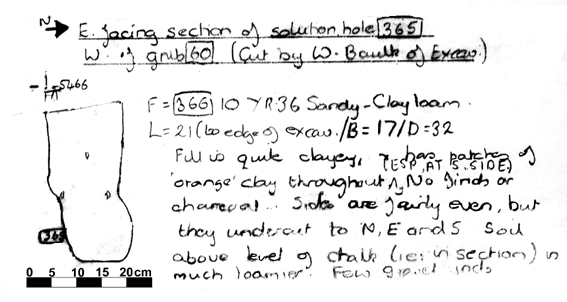 N E. facing section of solution hole 365
W. of grub 60 (Cut by W. Baulk of Excav.)
5466
F = 366 10 YR 36 Sandy-Clay loam.
L = 21 (to edge of excav. /B = 17/D = 32
Fill is quite clayey, & has patches of
(ESP. AT S. SIDE)
'orange' clay throughout. No finds or
charcoal... Sides are fairly even, but
they undercut to N, E and S Soil
above level of chalk (ie: in section) is
much loamier. Few gravel incs
365
0 5 10 15 20cm